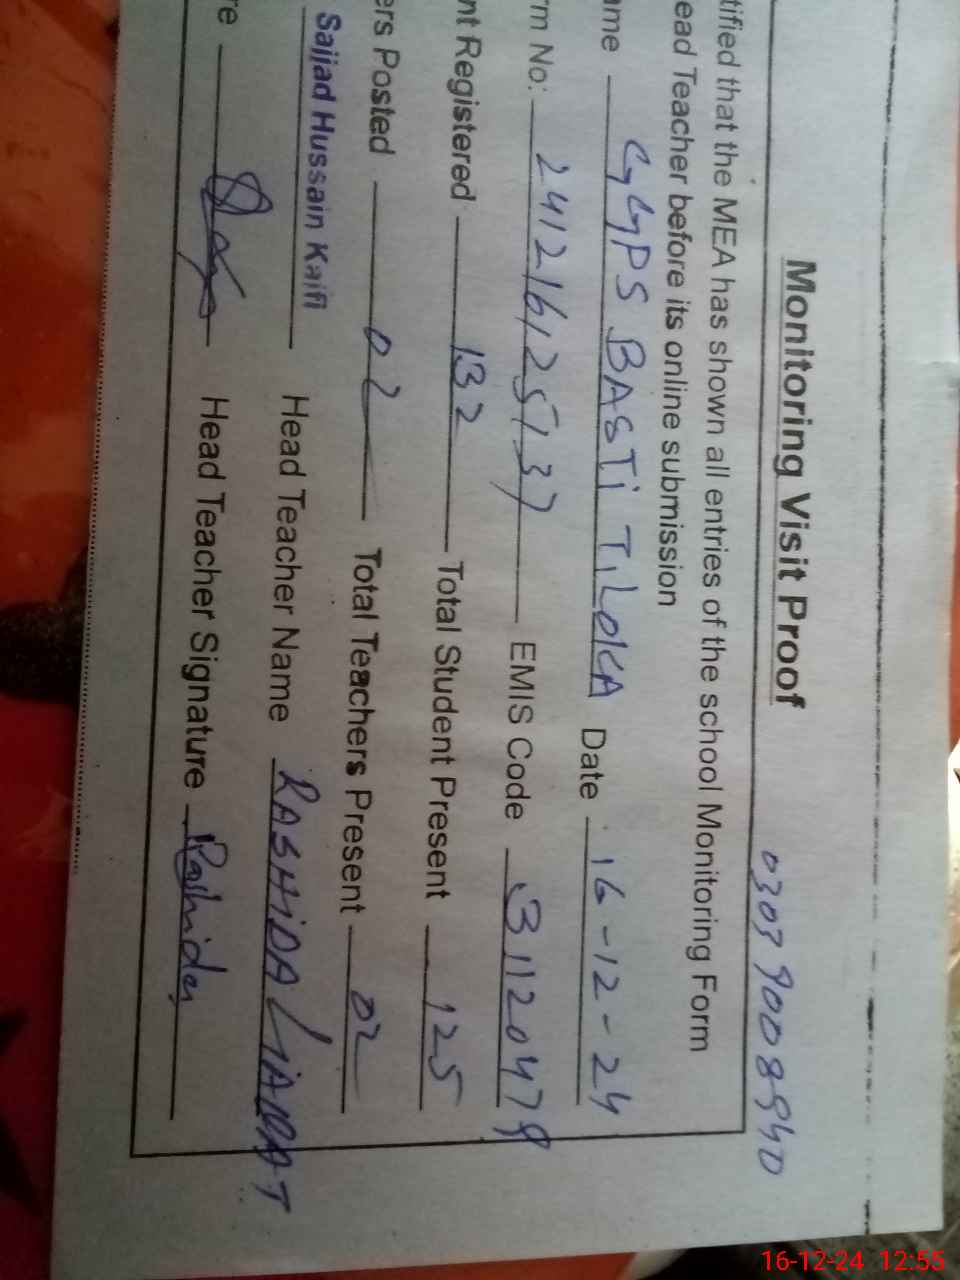 Monitoring Visit Proof 0303 9008940
tified that the MEA has shown all entries of the school Monitoring Form
ead Teacher before its online submission
ame GGPS BASTI TILOKA Date 16-12-24
rm No: 241216125137 EMIS Code 31120478
nt Registered 132 Total Student Present 125
ers Posted 02 Total Teachers Present 02
Sajjad Hussain Kaifi Head Teacher Name RASHIDA LIAQAT
re Head Teacher Signature Rashida
16-12-24 12:55